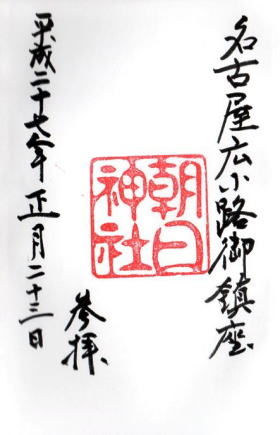 名古屋広小路御鎮座
朝日
神社
参拝
平成二十七年正月二十三日